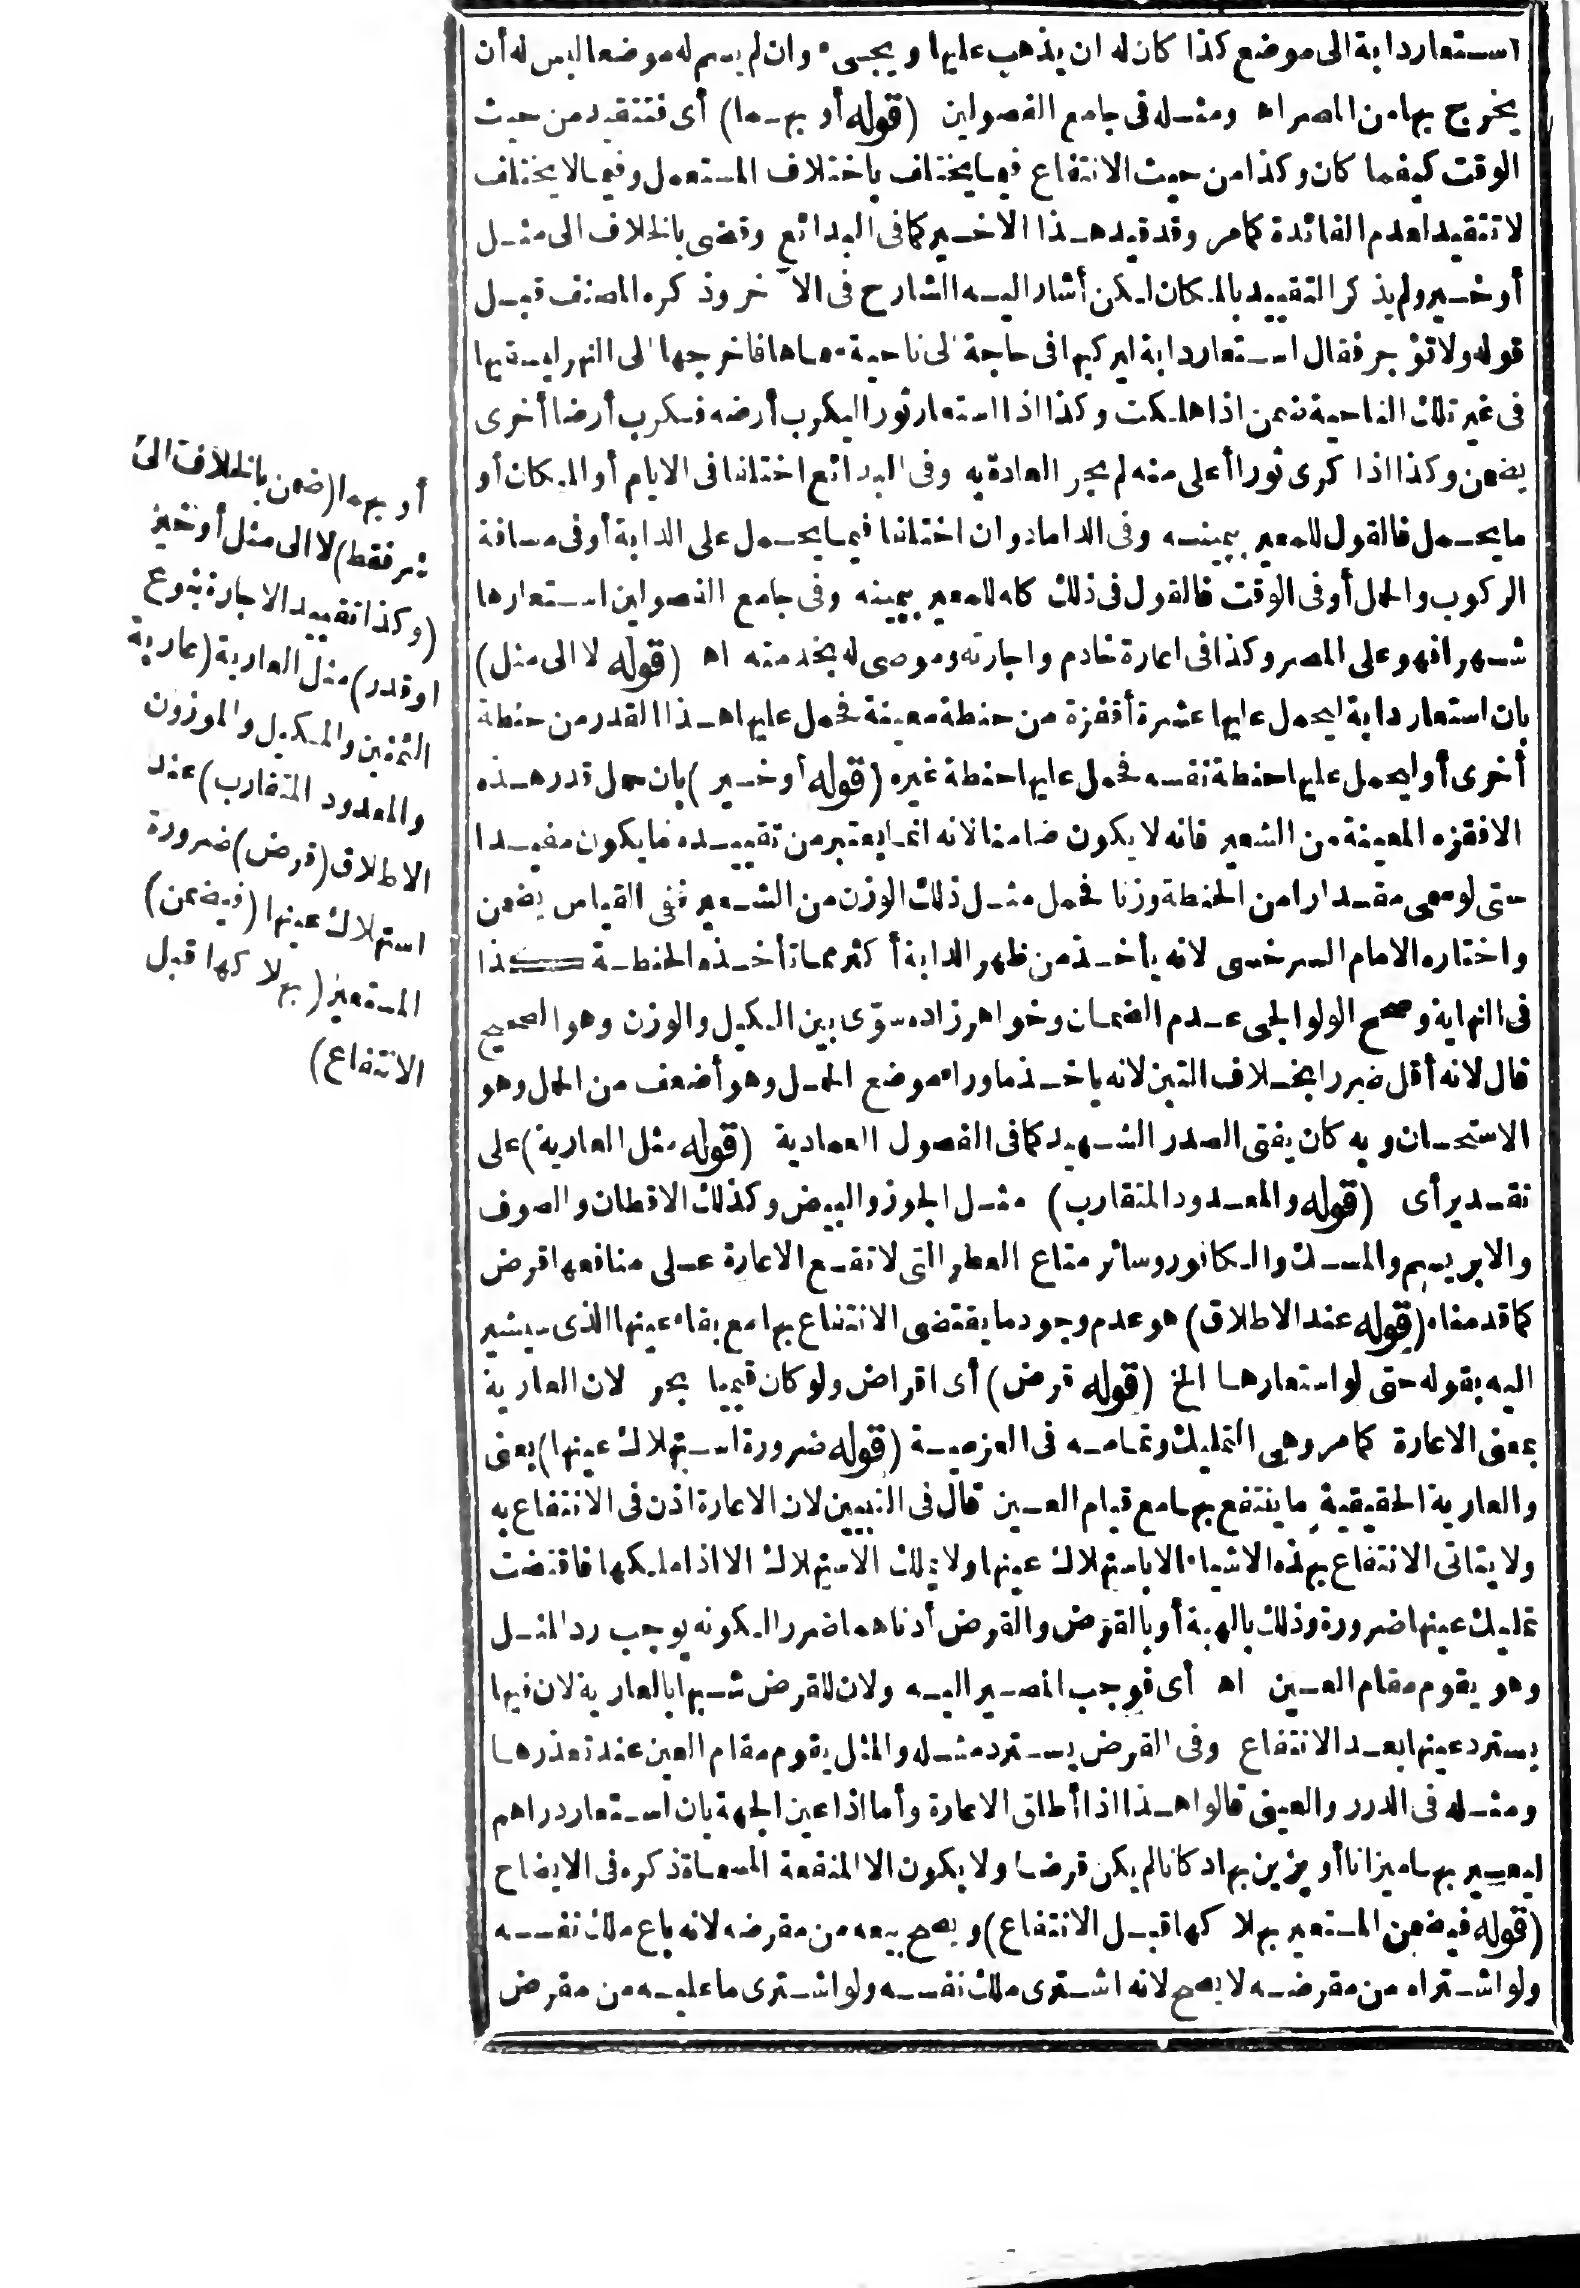 استعار دابة الى موضع كذا كان له ان يذهب عليها ويجىء وان لم يسم له موضعا ليس له أن
يخرج بها من المصر اه ومثله فى جامع الفصولين (قوله أو بهما) أى فتتقيد من حيث
الوقت كيفما كان وكذا من حيث الانتفاع فيما يختلف باختلاف المستعمل وفيما لا يختلف
لا تتقيد لعدم الفائدة كمامر وقد قيد هذا الاخير كمافى البدائع وقضى بالخلاف الى مثل
أو خير ولم يذكر التقييد بالمكان لكن أشار اليه الشارح فى الآخر وذكره المصنف قبيل
قوله ولا تؤجر فقال استعار دابة ليركبها فى حاجة الى ناحية سماها فاخرجها الى النهر ليسقيها
فى غير تلك الناحية ضمن اذا هلكت وكذا اذا استعار ثورا ليكرب أرضه فكرب أرضا أخرى
يضمن وكذا اذا كرى ثورا أعلى منه لم يجر العادة به وفى البدائع اختلفا فى الايام أو المكان أو
ما يحمل فالقول للمعير بيمينه وفى الداماد وان اختلفا فيما يحمل على الدابة أو فى مسافة
الركوب والحمل أو فى الوقت فالقول فى ذلك كله للمعير بيمينه وفى جامع الفصولين استعارها
شهرا فهو على المصر وكذا فى اعارة خادم واجارته وموصى له بخدمته اه (قوله لا الى مثل)
بان استعار دابة ليحمل عليها عشرة أقفزة من حنطة معينة فحمل عليها هذا القدر من حنطة
أخرى أو ليحمل عليها حنطة نفسه فحمل عليها حنطة غيره (قوله أو خير) بان حمل قدر هذه
الاقفزه المعينة من الشعير فانه لا يكون ضامنا لانه انما يعتبر من تقييده ما يكون مفيدا
حتى لو سمى مقدارا من الحنطة وزنا فحمل مثل ذلك الوزن من الشعير ففى القياس يضمن
واختاره الامام السرخسى لانه يأخذ من ظهر الدابة أكثر مما تأخذه الحنطة كذا
فى النهاية وصحح الولوالجى عدم الضمان وخواهر زاده سوّى بين الكيل والوزن وهو الصحيح
قال لانه أقل ضررا بخلاف التبن لانه ياخذ ماوراء موضع الحمل وهو أضعف من الحمل وهو
الاستحسان وبه كان يفتى الصدر الشهيد كمافى الفصول العمادية (قوله مثل العارية) على
تقدير أى (قوله والمعدود المتقارب) مثل الجوز والبيض وكذلك الاقطان والصوف
والابريسم والمسك والكافور وسائر متاع العطر التى لا تقع الاعارة على منافعها قرض
كما قدمناه (قوله عند الاطلاق) هو عدم وجود ما يقتضى الانتفاع بها مع بقاء عينها الذى سيشير
اليه بقوله حتى لو استعارها الخ (قوله قرض) أى اقراض ولو كان قيميا بحر لان العارية
بمعنى الاعارة كمامر وهى التمليك وتمامه فى العزمية (قوله ضرورة استهلاك عينها) يعنى
والعارية الحقيقية ما ينتفع بها مع قيام العين قال فى التبيين لان الاعارة اذن فى الانتفاع به
ولا يتاتى الانتفاع بهذه الاشياء الا باستهلاك عينها ولا يملك الاستهلاك الا اذا ملكها فاقتضت
تمليك عينها ضرورة وذلك بالهبة أو بالقرض والقرض أدناهما ضررا لكونه يوجب رد المثل
وهو يقوم مقام العين اه أى فوجب المصير اليه ولان للقرض شبها بالعارية لان فيها
يسترد عينها بعد الانتفاع وفى القرض يسترد مثله والمثل يقوم مقام العين عند تعذرها
ومثله فى الدرر والعينى قالوا هذا اذا أطلق الاعارة وأما اذا عين الجهة بان استعار دراهم
ليعير بها ميزانا أو يزين بها دكانا لم يكن قرضا ولا يكون الا المنفعة المسماة ذكره فى الايضاح
(قوله فيضمن المستعير بهلاكها قبل الانتفاع) ويصح بيعه من مقرضه لانه باع ملك نفسه
ولو اشتراه من مقرضه لا يصح لانه اشترى ملك نفسه ولو اشترى ما عليه من مقرض
أو بهما (ضمن بالخلاف الى
شر فقط) لا الى مثل أو خير
(وكذا تقييد الاجارة بنوع
او قدر) مثل العارية (عارية
الثمنين والمكيل والموزون
والمعدود المتقارب) عند
الاطلاق (قرض) ضرورة
استهلاك عينها (فيضمن)
المستعير (بهلاكها قبل
الانتفاع)